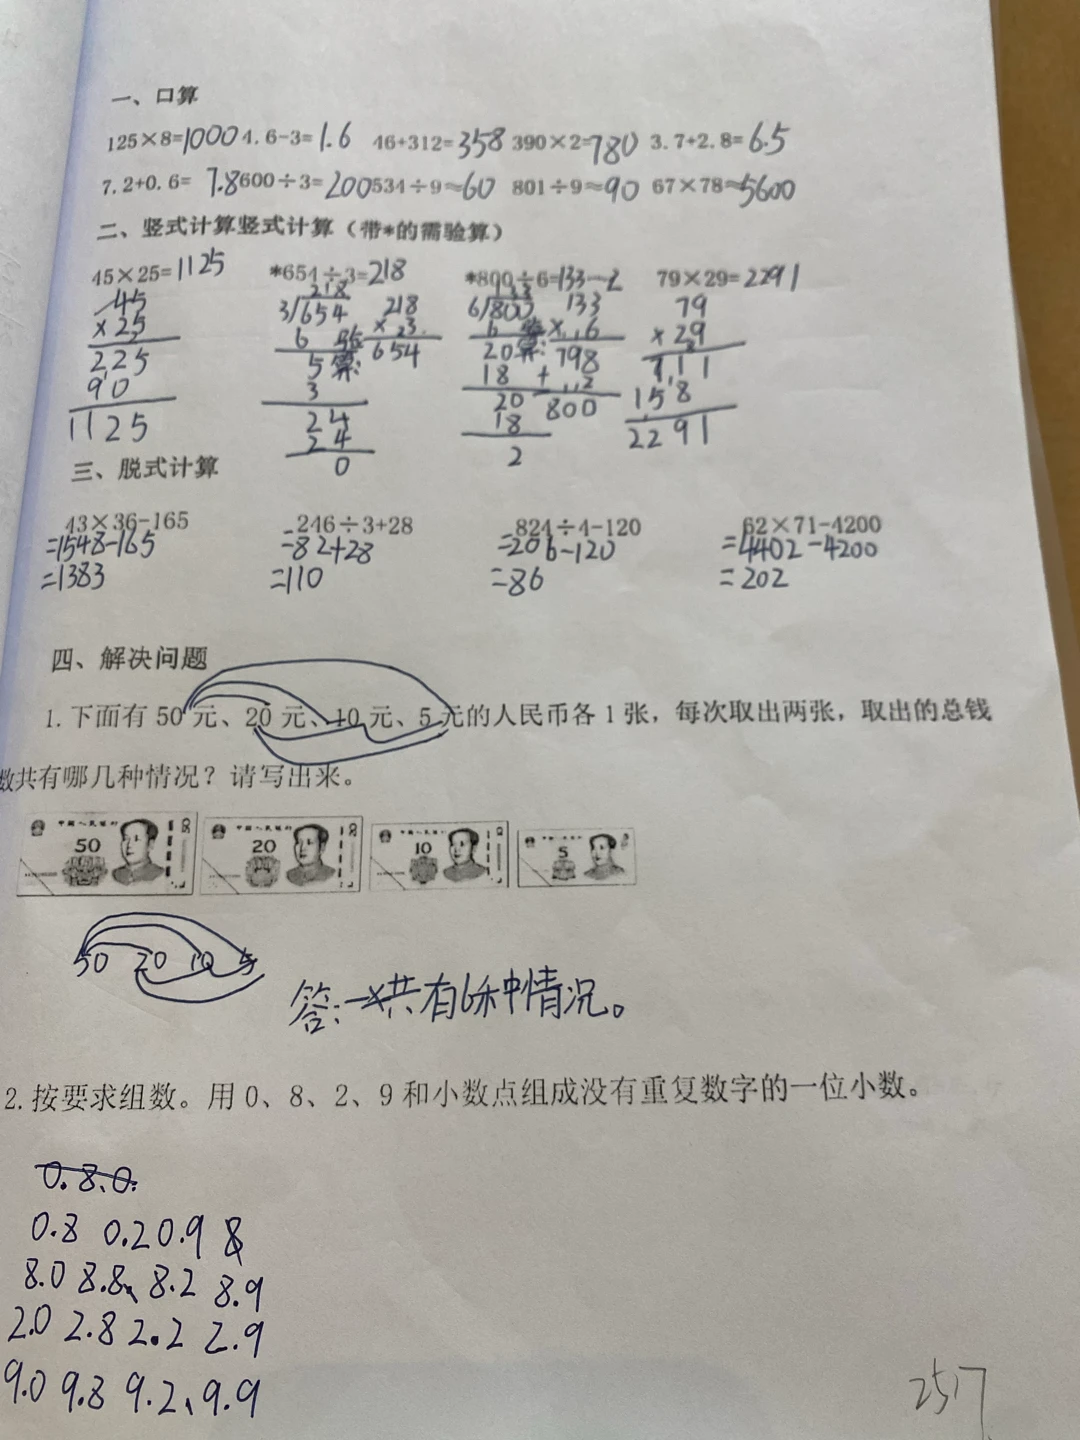 一、口算
125×8=1000 4.6-3=1.6 46+312=358 390×2=780 3.7+2.8=6.5
7.2+0.6=7.8 600÷3=200 534÷9≈60 801÷9≈90 67×78≈5600
二、竖式计算竖式计算（带*的需验算）
45×25=1125 *654÷3=218 *800÷6=133…2 79×29=2291
45
×25
225
90
1125
218
3/654
6
5
3
24
24
0
验算：
218
×3
654
133
6/800
6
20
18
20
18
2
验算：
133
×6
798
+2
800
79
×29
711
158
2291
三、脱式计算
43×36-165 246÷3+28 824÷4-120 62×71-4200
=1548-165 =82+28 =206-120 =4402-4200
=1383 =110 =86 =202
四、解决问题
1.下面有50元、20元、10元、5元的人民币各1张，每次取出两张，取出的总钱
数共有哪几种情况？请写出来。
50 20 10 5
50 20 10 5
答：一共有6种情况。
2.按要求组数。用0、8、2、9和小数点组成没有重复数字的一位小数。
0.8.0.
0.8 0.2 0.9 8
8.0 8.8、8.2 8.9
2.0 2.8 2.2 2.9
9.0 9.8 9.2、9.9
2517